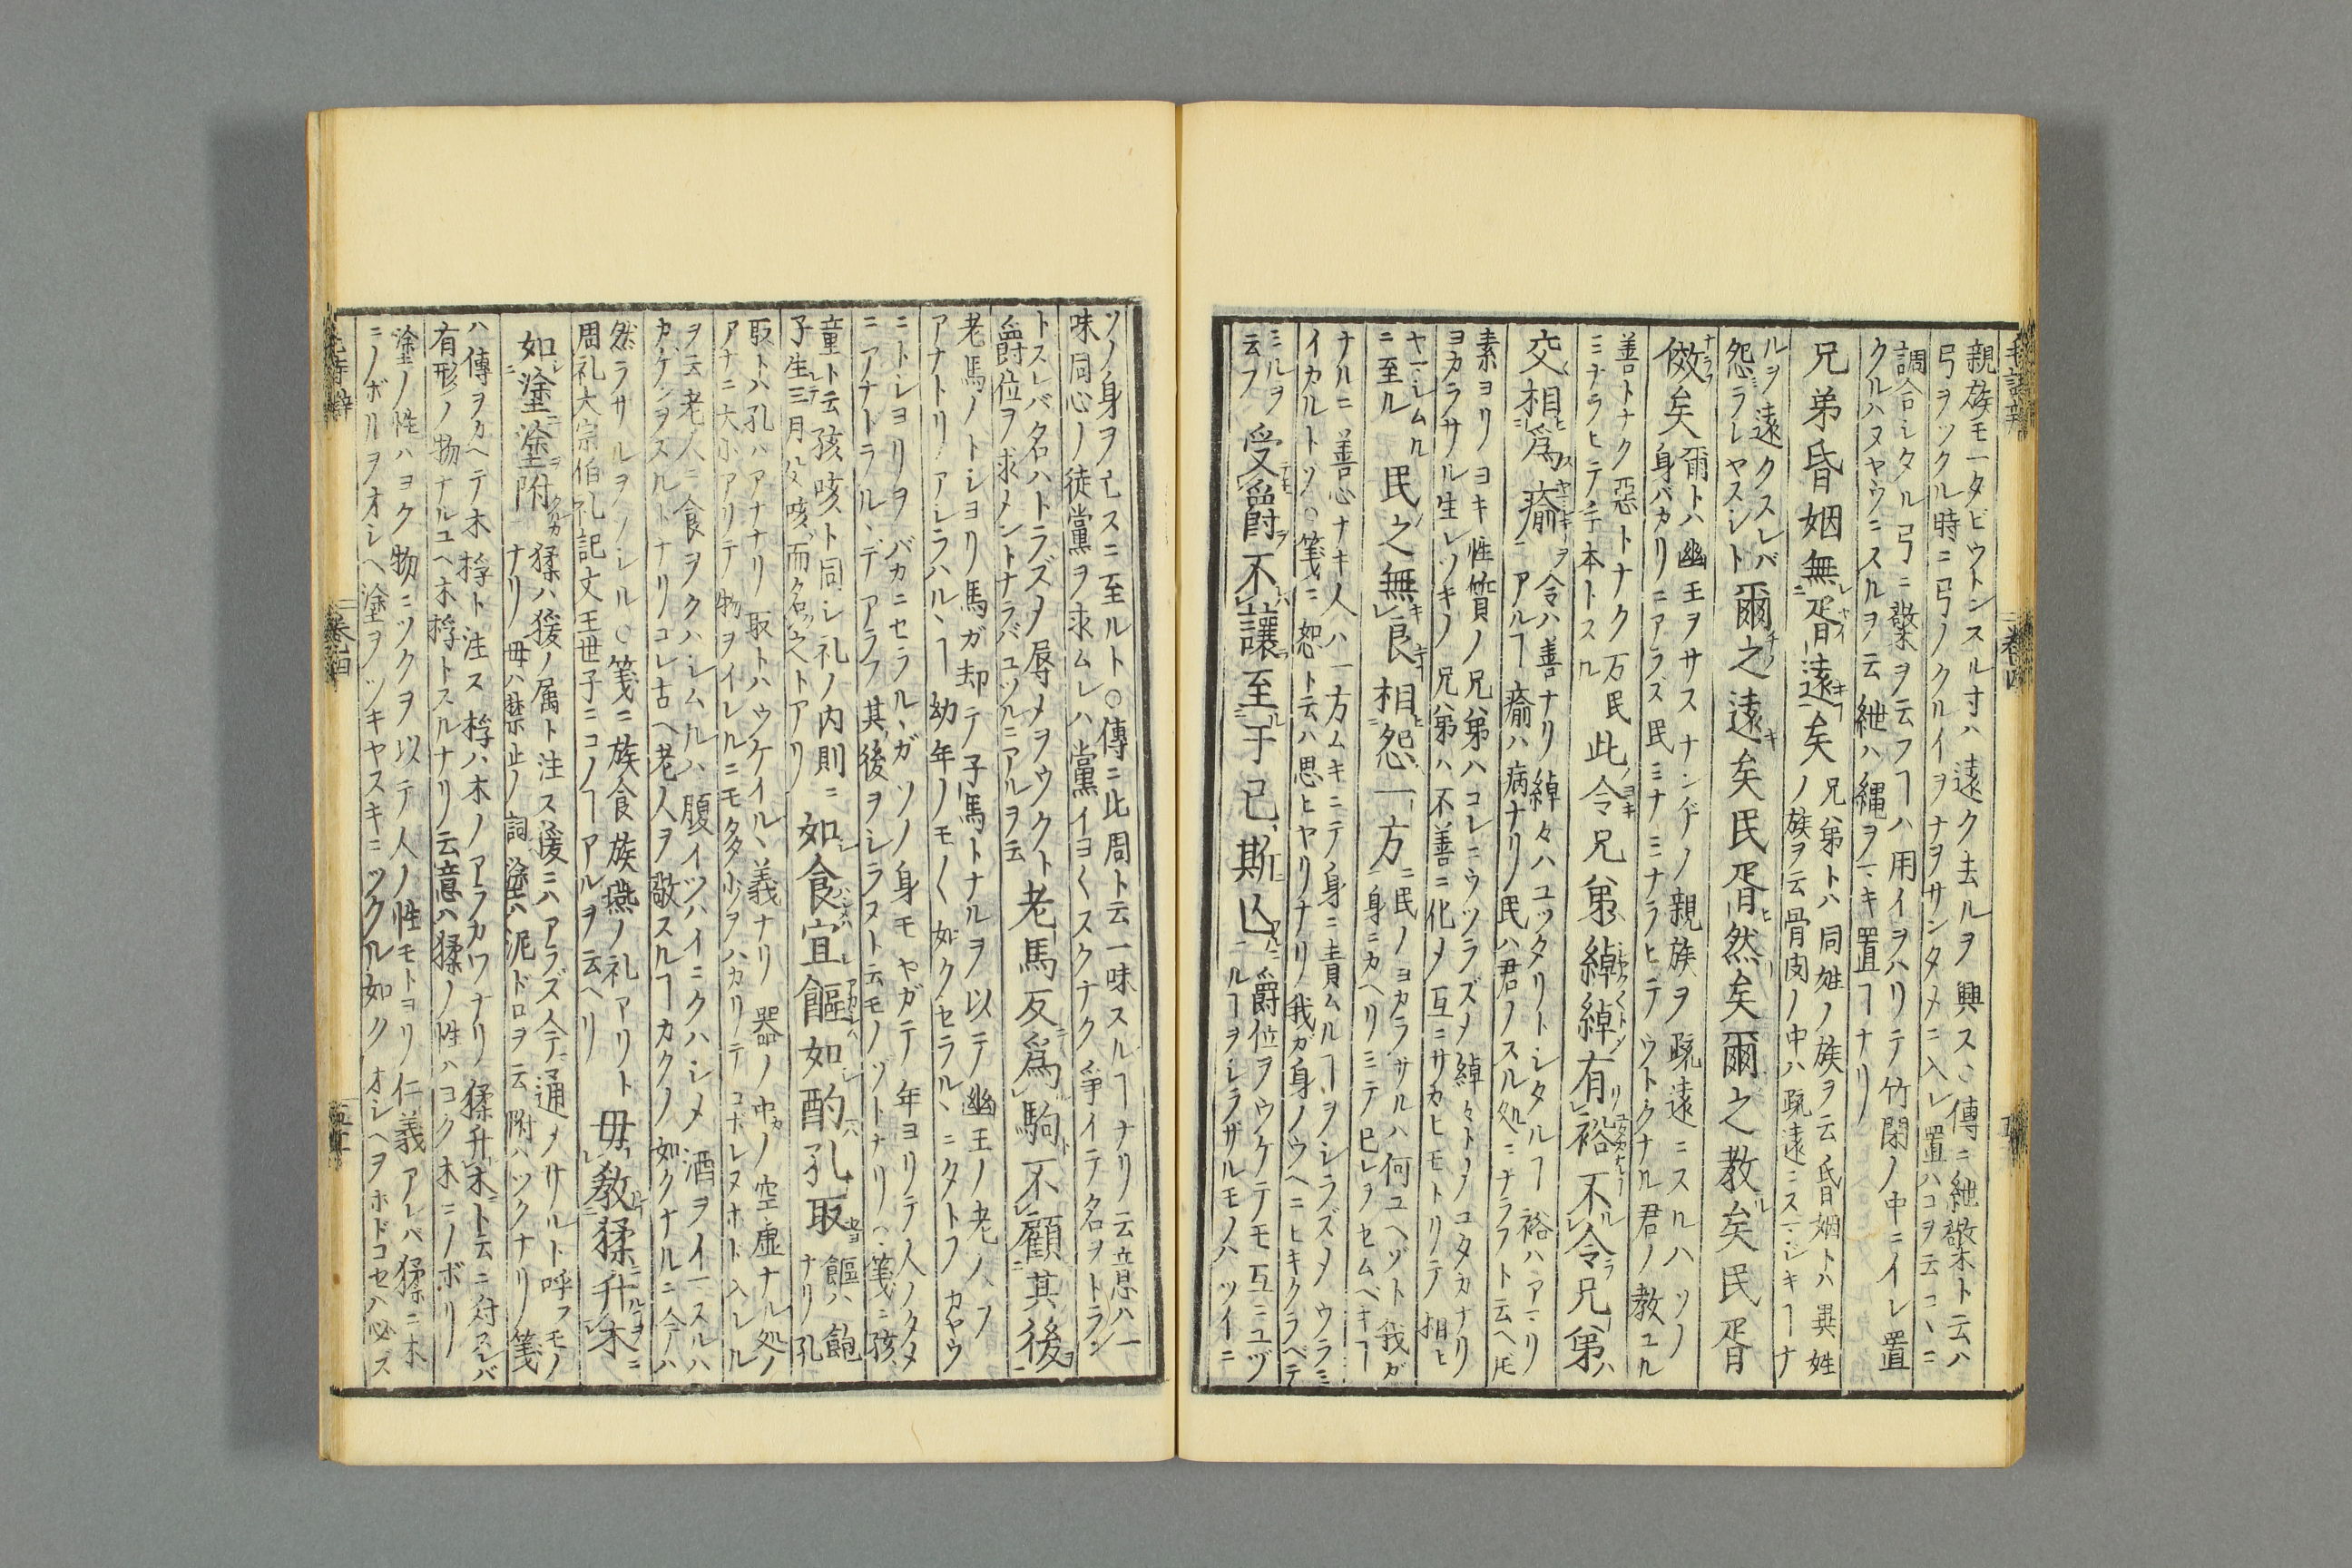 親族モ一タビウトンスル寸ハ遠ク去ルヲ興ス○傳ニ紲檠ト云ハ
弓ヲツクル時ニ弓ノクルイヲナヲサンタメニ入レ置ハコヲ云コヽニ
調合シタル弓ニ檠ヲ云フヿハ用イヲハリテ竹閉ノ中ニイレ置
クルハヌヤウニスルヲ云紲ハ縄ヲマキ置ヿナリ
兄弟昏姻無胥遠矣
兄弟トハ同姓ノ族ヲ云昏姻トハ異姓
ノ族ヲ云骨肉ノ中ハ疏遠ニスマシキヿナ
ルヲ遠クスレバ
怨ラレヤスシト
爾之遠矣民胥然矣爾之教矣民胥
傚矣
爾トハ幽王ヲサスナンヂノ親族ヲ疏遠ニスルハソノ
身バカリニアラズ民ミナミナラヒテウトクナル君ノ教ユル
善トナク惡トナク万民
ミナラヒテ手本トスル
此令兄弟綽綽有裕不令兄弟
交相為瘉
令ハ善ナリ綽々ハユツタリトシタルヿ裕ハアマリ
アルヿ瘉ハ病ナリ民ハ君ノスル処ニナラフト云ヘ𪜈
素ヨリヨキ性質ノ兄弟ハコレニウツラズメ綽々トノコタカナリ
ヨカラサル生レツキノ兄弟ハ不善ニ化メ互ニサカヒモトリテ相ヒ
ヤマシムル
ニ至ル
民之無良相怨一方
民ノヨカラサルハ何ユヘゾト我ガ
身ニカヘリミテ已レヲセムベキヿ
ナルニ善心ナキ人ハ一方ムキニテ身ニ責ムルヿヲシラズメウラミ
イカルトソ○箋ニ恕ト云ハ思ヒヤリナリ我ガ身ノウヘニヒキクラベテ
ミルヲ
云フ
受爵不讓至于已斯亾
爵位ヲウケテモ互ニユヅ
ルヿヲシラザルモノハツイニ
ソノ身ヲ亡スニ至ルト○傳ニ比周ト云一味スルヿナリ云意ハ一
味同心ノ徒黨ヲ求ムレハ黨イヨ〱スクナク爭イテ名ヲトラン
トスレバ名ハトラズメ辱メヲウクト
爵位ヲ求メントナラバユツルニアルヲ云
老馬反為駒不顧其後
老馬ノトシヨリ馬ガ却テ子馬トナルヲ以テ幽王ノ老人ヲ
アナトリアレラハルヽヿ幼年ノモノヽ如クセラルヽニタトフカヤウ
ニトシヨリヲバカニセラルヽガソノ身モヤガテ年ヨリテ人ノタメ
ニアナドラルヽデアラフ其後ヲシラヌト云モノゾトナリ○箋ニ孩
童ト云孩咳ト同シ礼ノ内則ニ
子生三月父咳而名之トアリ
如食宜饇如酌孔取
饇ハ飽
ナリ孔
取トハ孔ハアナナリ取トハウケイルヽ義ナリ器ノ中ノ空虚ナル処ノ
アナニ大小アリテ物ヲイレルニモ多少ヲハカリテコホレヌホト入レル
ヲ云老人ニ食ヲクハシムルハ腹イツハイニクハシメ酒ヲイマスルハ
カゲンヲスルトナリコレ古ヘ老人ヲ敬スルヿカクノ如クナルニ今ハ
然ラサルヲソシル○箋ニ族食族燕ノ礼アリト
周礼大宗伯礼記文王世子ニコノヿアルヲ云ヘリ
毋教猱升木
如塗塗附
猱ハ猨ノ属ト注ス猨ニハアラズ今通メサルト呼フモノ
ナリ毋ハ禁止ノ詞塗ハ泥ドロヲ云附ハツクナリ箋
ハ傳ヲカヘテ木桴ト注ス桴ハ木ノアラカワナリ猱升木ト云ニ対スレバ
有形ノ物ナルユヘ木桴トスルナリ云意ハ猱ノ性ハヨク木ニノボリ
塗ノ性ハヨク物ニツクヲ以テ人ノ性モトヨリ仁義アレバ猱ニ木
ニノボルヲオシヘ塗ヲツキヤスキニツクル如クオシヘヲホドコセハ必ズ